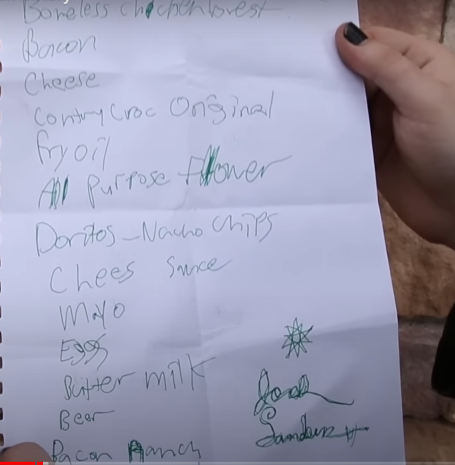 Boneless chicpen brest
Bacon
Cheese
Contry Croc Original
fry oil
All Purpose Flower
Doritos - Nacho Chips
Chees Sauce
Mayo
Eggs
Butter milk
Beer
Bacon Ranch